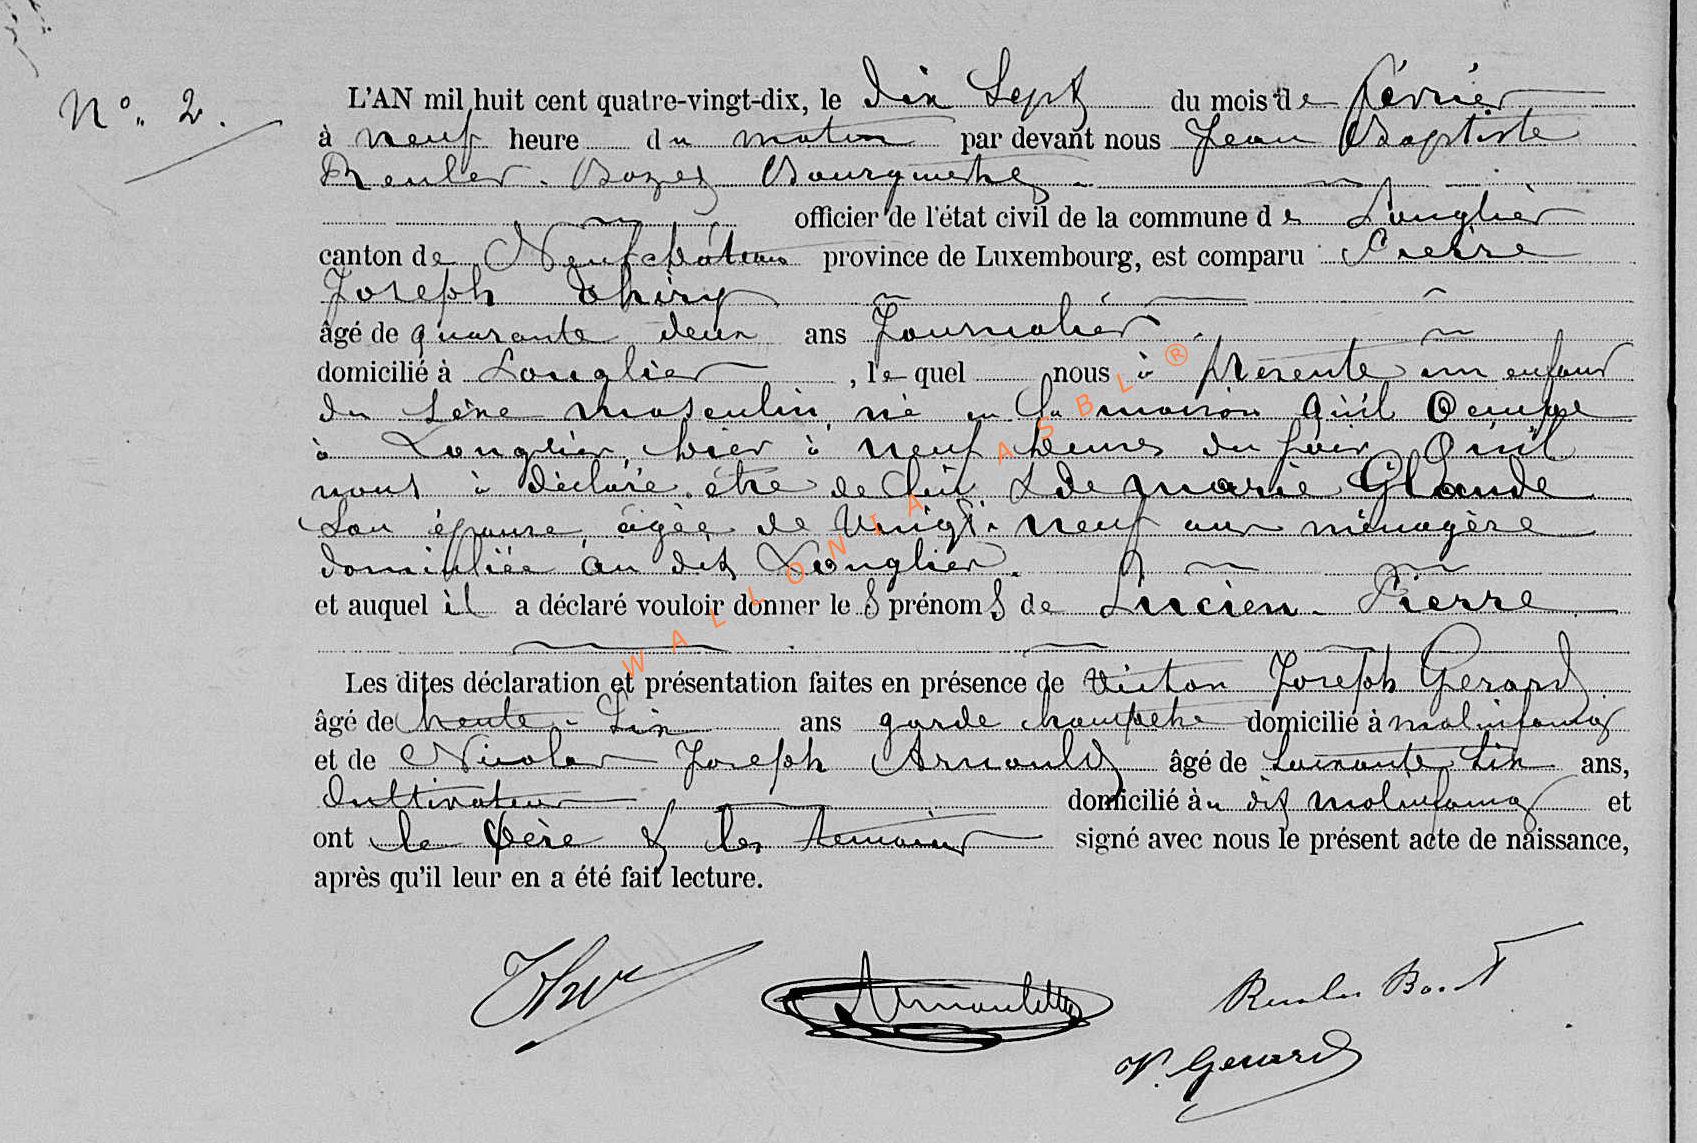 N° 2.
L'AN mil huit cent quatre-vingt-dix, le dix Sept du mois de février
à neuf heure du matin par devant nous Jean Baptiste
Reuler. Bozet Bourgmestre
officier de l'état civil de la commune de Longlier
canton de Neufchâteau province de Luxembourg, est comparu Pierre
Joseph Thiry
âgé de quarante deux ans Journalier
domicilié à Longlier, lequel nous à présenté un enfant
du Sèxe masculin, né en la maison qu'il Occupe
à Longlier, hier à neuf heures du soir, Qu'il
nous à déclaré être de lui & de marie Glaude
Son épouse, âgée de Vingt-neuf ans ménagère
domiciliée au dit Longlier.
et auquel il a déclaré vouloir donner les prénoms de Lucien-Pierre
Les dites déclaration et présentation faites en présence de Victor Joseph Gerard
âgé de trente-Six ans garde champêtre domicilié à molinfaing
et de Nicolas Joseph Arnould âgé de Soixante Six ans,
Cultivateur domicilié au dit molinfaing et
ont le père & les témoins signé avec nous le présent acte de naissance,
après qu'il leur en a été fait lecture.
V. Gerard
WALLONIA ASBL ®